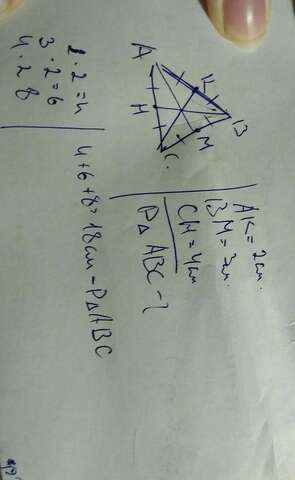 A
K
B
H
M
C
AK = 2см.
BM = 3см.
CH = 4см
P△ABC - ?
2 · 2 = 4
3 · 2 = 6
4 · 2 8
4 + 6 + 8 = 18см - P△ABC